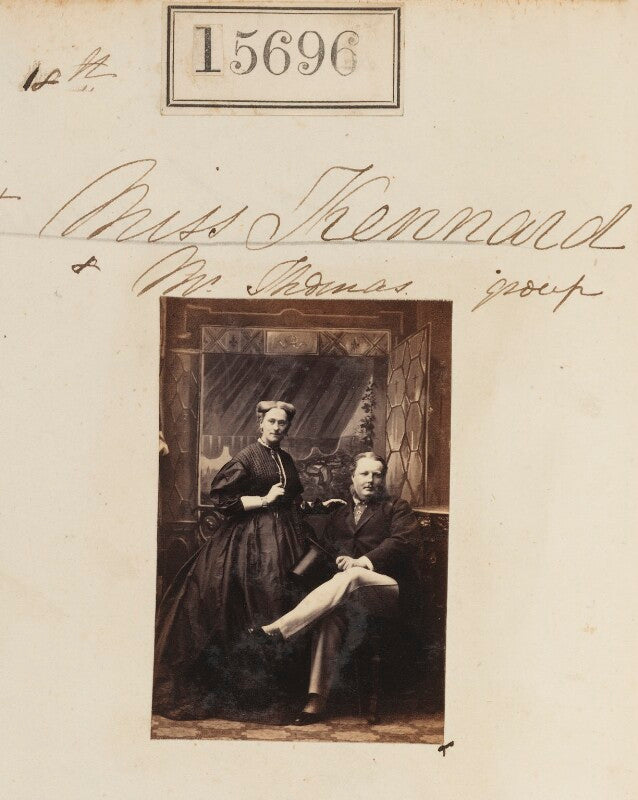 15696
18th
Miss Kennard
& Mr Thomas group